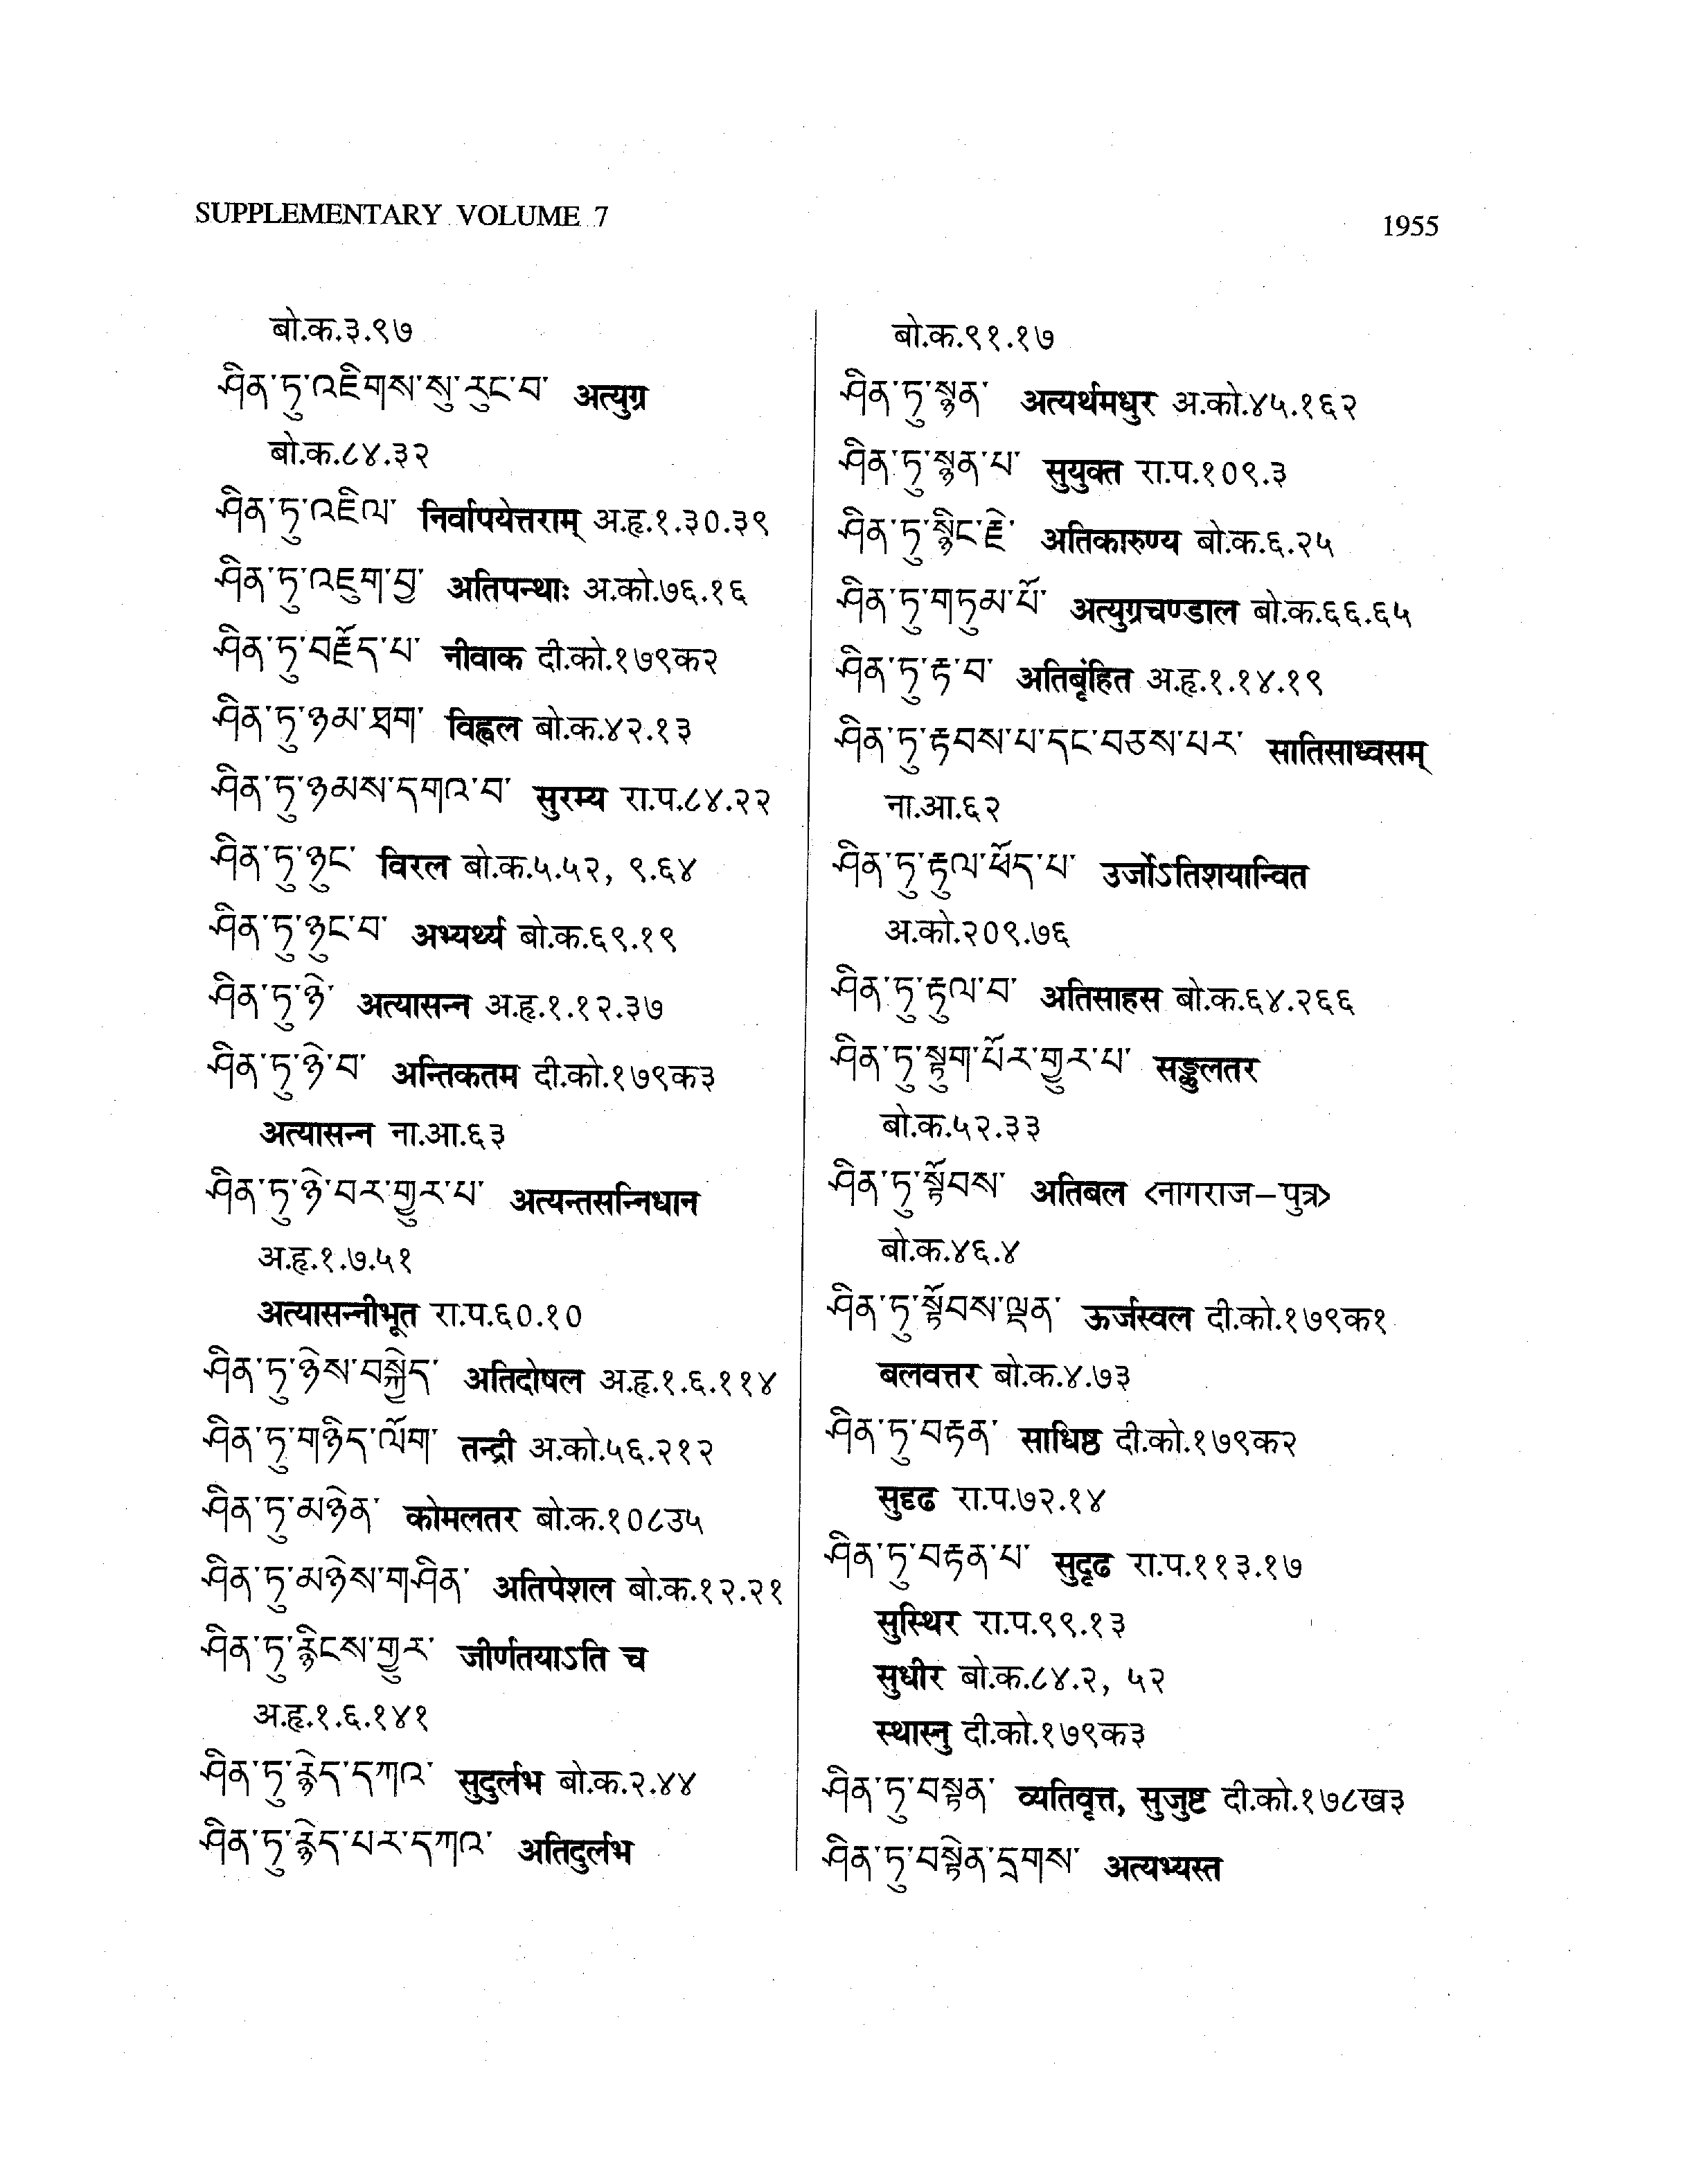 SUPPLEMENTARY VOLUME 7
1955
बो.क.३.९७
ཤིན་ཏུ་འཇིགས་སུ་རུང་བ་ अत्युग्र
बो.क.८४.३२
ཤིན་ཏུ་འཇིལ་ निर्वापयेत्तराम् अ.हृ.१.३०.३९
ཤིན་ཏུ་འཇུག་བྱ་ अतिपन्थाः अ.को.७६.१६
ཤིན་ཏུ་བརྗོད་པ་ नीवाक दी.को.१७९क२
ཤིན་ཏུ་ཉམ་ཐག་ विह्वल बो.क.४२.१३
ཤིན་ཏུ་ཉམས་དགའ་བ་ सुरम्य रा.प.८४.२२
ཤིན་ཏུ་ཉུང་ विरल बो.क.५.५२, ९.६४
ཤིན་ཏུ་ཉུང་བ་ अभ्यर्थ्य बो.क.६९.१९
ཤིན་ཏུ་ཉེ་ अत्यासन्न अ.हृ.१.१२.३७
ཤིན་ཏུ་ཉེ་བ་ अन्तिकतम दी.को.१७९क३
अत्यासन्न ना.आ.६३
ཤིན་ཏུ་ཉེ་བར་གྱུར་པ་ अत्यन्तसन्निधान
अ.हृ.१.७.५१
अत्यासन्नीभूत रा.प.६०.१०
ཤིན་ཏུ་ཉེས་བསྐྱེད་ अतिदोषल अ.हृ.१.६.११४
ཤིན་ཏུ་གཉིད་ལོག་ तन्द्री अ.को.५६.२१२
ཤིན་ཏུ་མཉེན་ कोमलतर बो.क.१०८उ५
ཤིན་ཏུ་མཉེས་གཤིན་ अतिपेशल बो.क.१२.२१
ཤིན་ཏུ་རྙིངས་གྱུར་ जीर्णतयाऽति च
अ.हृ.१.६.१४१
ཤིན་ཏུ་རྙེད་དཀའ་ सुदुर्लभ बो.क.२.४४
ཤིན་ཏུ་རྙེད་པར་དཀའ་ अतिदुर्लभ
बो.क.९१.१७
ཤིན་ཏུ་སྙན་ अत्यर्थमधुर अ.को.४५.१६२
ཤིན་ཏུ་སྙན་པ་ सुयुक्त रा.प.१०९.३
ཤིན་ཏུ་སྙིང་རྗེ་ अतिकारुण्य बो.क.६.२५
ཤིན་ཏུ་གཏུམ་པོ་ अत्युग्रचण्डाल बो.क.६६.६५
ཤིན་ཏུ་རྟ་བ་ अतिबृंहित अ.हृ.१.१४.१९
ཤིན་ཏུ་རྟབས་པ་དང་བཅས་པར་ सातिसाध्वसम्
ना.आ.६२
ཤིན་ཏུ་རྟུལ་ཕོད་པ་ उर्जोऽतिशयान्वित
अ.को.२०९.७६
ཤིན་ཏུ་རྟུལ་བ་ अतिसाहस बो.क.६४.२६६
ཤིན་ཏུ་སྟུག་པོར་གྱུར་པ་ सङ्कुलतर
बो.क.५२.३३
ཤིན་ཏུ་སྟོབས་ अतिबल <नागराज-पुत्र>
बो.क.४६.४
ཤིན་ཏུ་སྟོབས་ལྡན་ ऊर्जस्वल दी.को.१७९क१
बलवत्तर बो.क.४.७३
ཤིན་ཏུ་བརྟན་ साधिष्ठ दी.को.१७९क२
सुदृढ रा.प.७२.१४
ཤིན་ཏུ་བརྟན་པ་ सुदृढ रा.प.११३.१७
सुस्थिर रा.प.९९.१३
सुधीर बो.क.८४.२, ५२
स्थास्नु दी.को.१७९क३
ཤིན་ཏུ་བསྟན་ व्यतिवृत्त, सुजुष्ट दी.को.१७८ख३
ཤིན་ཏུ་བསྟེན་དྲགས་ अत्यभ्यस्त